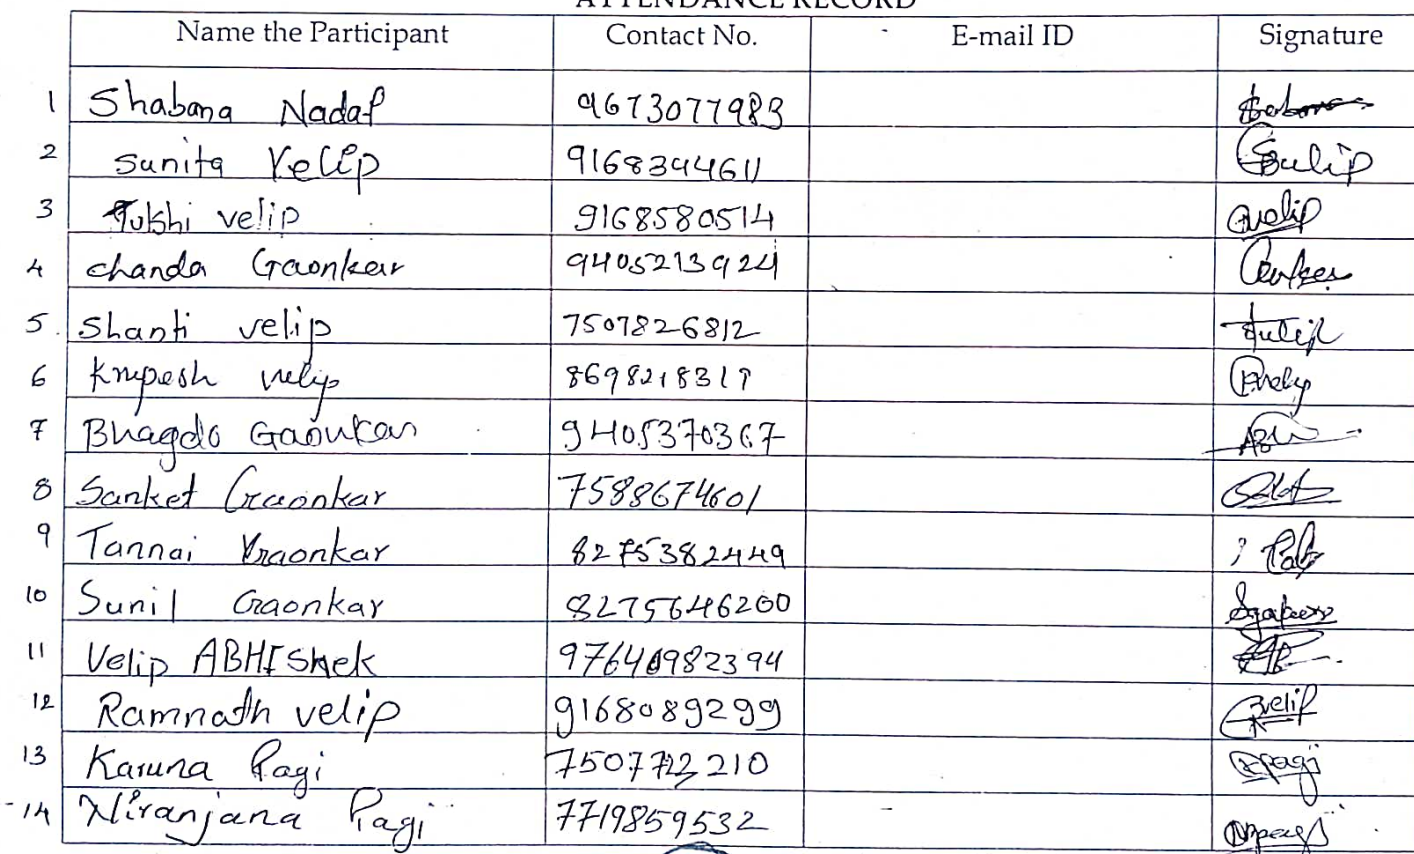 ATTENDANCE RECORD
Name the Participant Contact No. E-mail ID Signature
1 Shabana Nadaf 9673077983
2 Sunita Velip 9168394611 Svelip
3 Tulshi velip 9168580514 velip
4 chanda Gaonkar 9405213924
5. Shanti velip 7507826812
6 Krupesh velip
7 Bhagdo Gaonkar 9405370367
8 Sanket Gaonkar 7588674601
9 Tannai Gaonkar 8275382449
10 Sunil Gaonkar 8275646200
11 Velip ABHISHek 9764982394
12 Ramnath velip 9168089299 velip
13 Karuna Pagi pagi
14 Niranjana Pagi 7719859532